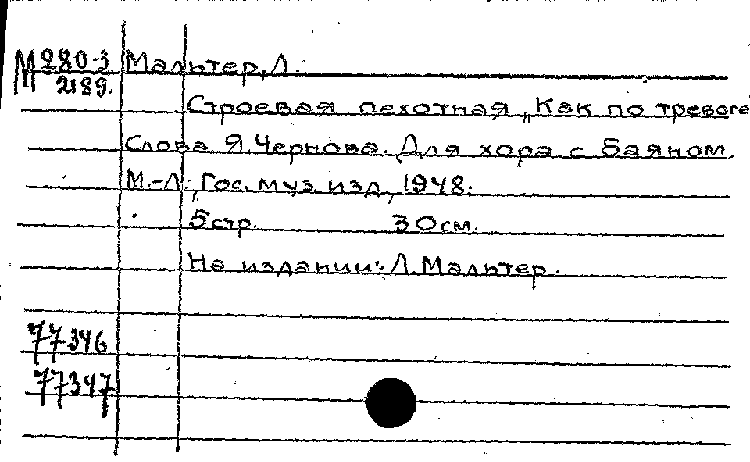 М 280-3 Мальтер, Л.
2189.
Строевая пехотная „Как по тревоге
Слова Я. Чернова. Для хора с баяном.
М.-Л., Гос. муз. изд., 1948.
5 стр. 30 см.
На издании: Л. Мальтер.
77346
77347